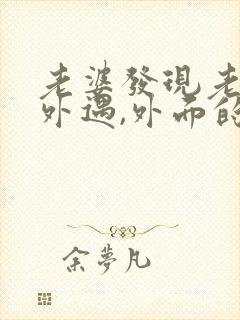 老婆發現老
外遇,外而的
余夢凡